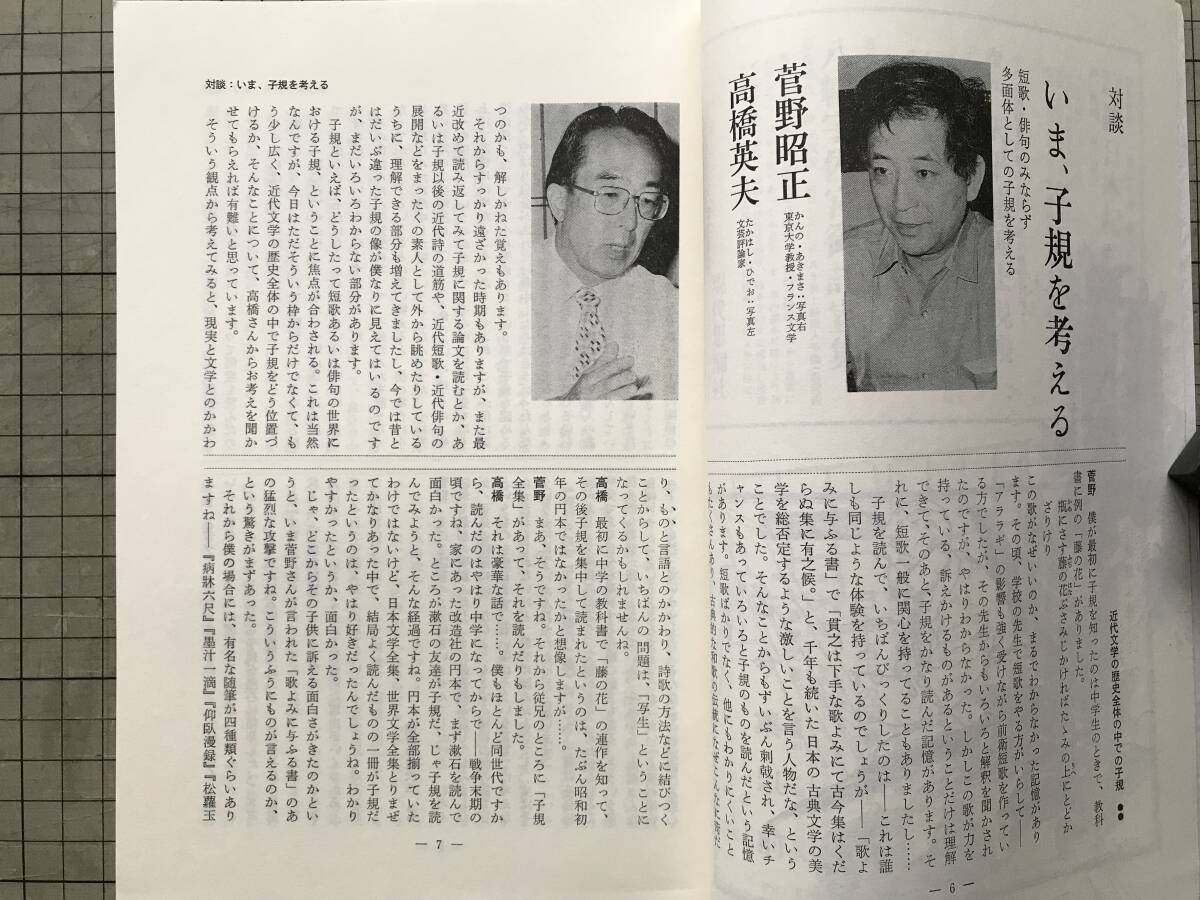 対談
いま、子規を考える
短歌・俳句のみならず
多面体としての子規を考える
菅野昭正
かんの・あきまさ::写真右
東京大学教授・フランス文学
高橋英夫
たかはし・ひでお::写真左
文芸評論家
近代文学の歴史全体の中での子規 ●●
菅野 僕が最初に子規を知ったのは中学生のときで、教科
書に例の「藤の花」がありました。
瓶にさす藤の花ぶさみじかければたゝみの上にとどか
ざりけり
この歌がなぜいいのか、まるでわからなかった記憶があり
ます。その頃、学校の先生で短歌をやる方がいらして――
「アララギ」の影響も強く受けながら前衛短歌を作ってい
る方でしたが、その先生からもいろいろと解釈を聞かされ
たのですが、やはりわからなかった。しかしこの歌が力を
持っている、訴えかけるものがあるということだけは理解
できて、そのあと、子規をかなり読んだ記憶があります。そ
れに、短歌一般に関心を持ってることもありましたし……
子規を読んで、いちばんびっくりしたのは――これは誰
しも同じような体験を持っているのでしょうが――「歌よ
みに与ふる書」で「貫之は下手な歌よみにて古今集はくだ
らぬ集に有之候。」と、千年も続いた日本の古典文学の美
学を総否定するような激しいことを言う人物だな、という
ことでした。そんなことからもずいぶん刺戟され、幸いチ
ャンスもあっていろいろと子規のものを読んだという記憶
があります。短歌ばかりでなく、他にもわかりにくいこと
もたくさんあり、古典的な和歌の伝統になぜこんなに
― 6 ―
対談:いま、子規を考える
つのかも、解しかねた覚えもあります。
それからすっかり遠ざかった時期もありますが、また最
近改めて読み返してみて子規に関する論文を読むとか、あ
るいは子規以後の近代詩の道筋や、近代短歌・近代俳句の
展開などをまったくの素人として外から眺めたりしている
うちに、理解できる部分も増えてきましたし、今では昔と
はだいぶ違った子規の像が僕なりに見えてはいるのです
が、まだいろいろわからない部分があります。
子規といえば、どうしたって短歌あるいは俳句の世界に
おける子規、ということに焦点が合わされる。これは当然
なんですが、今日はただそういう枠からだけでなくて、も
う少し広く、近代文学の歴史全体の中で子規をどう位置づ
けるか、そんなことについて、高橋さんからお考えを聞か
せてもらえれば有難いと思っています。
そういう観点から考えてみると、現実と文学とのかかわ
り、ものと言語とのかかわり、詩歌の方法などに結びつく
ことからして、いちばんの問題は、「写生」ということに
なってくるかもしれませんね。
高橋 最初に中学の教科書で「藤の花」の連作を知って、
その後子規を集中して読まれたというのは、たぶん昭和初
年の円本ではなかったかと想像しますが……。
菅野 まあ、そうですね。それから従兄のところに「子規
全集」があって、それを読んだりもしました。
高橋 それは豪華な話で……。僕もほとんど同世代ですか
ら、読んだのはやはり中学になってからで――戦争末期の
頃ですね、家にあった改造社の円本で、まず漱石を読んで
面白かった。ところが漱石の友達が子規だ、じゃ子規を読
んでみようと、そんな経過ですね。円本が全部揃っていた
わけではないけど、日本文学全集、世界文学全集とりまぜ
てかなりあった中で、結局よく読んだものの一冊が子規だ
ったというのは、やはり好きだったんでしょうね。わかり
やすかったというか、面白かった。
じゃ、どこからその子供に訴える面白さがきたのかとい
うと、いま菅野さんが言われた「歌よみに与ふる書」のあ
の猛烈な攻撃ですね。こういうふうにものが言えるのか、
という驚きがまずあった。
それから僕の場合には、有名な随筆が四種類ぐらいあり
ますね――『病牀六尺』『墨汁一滴』『仰臥漫録』『松蘿玉
― 7 ―